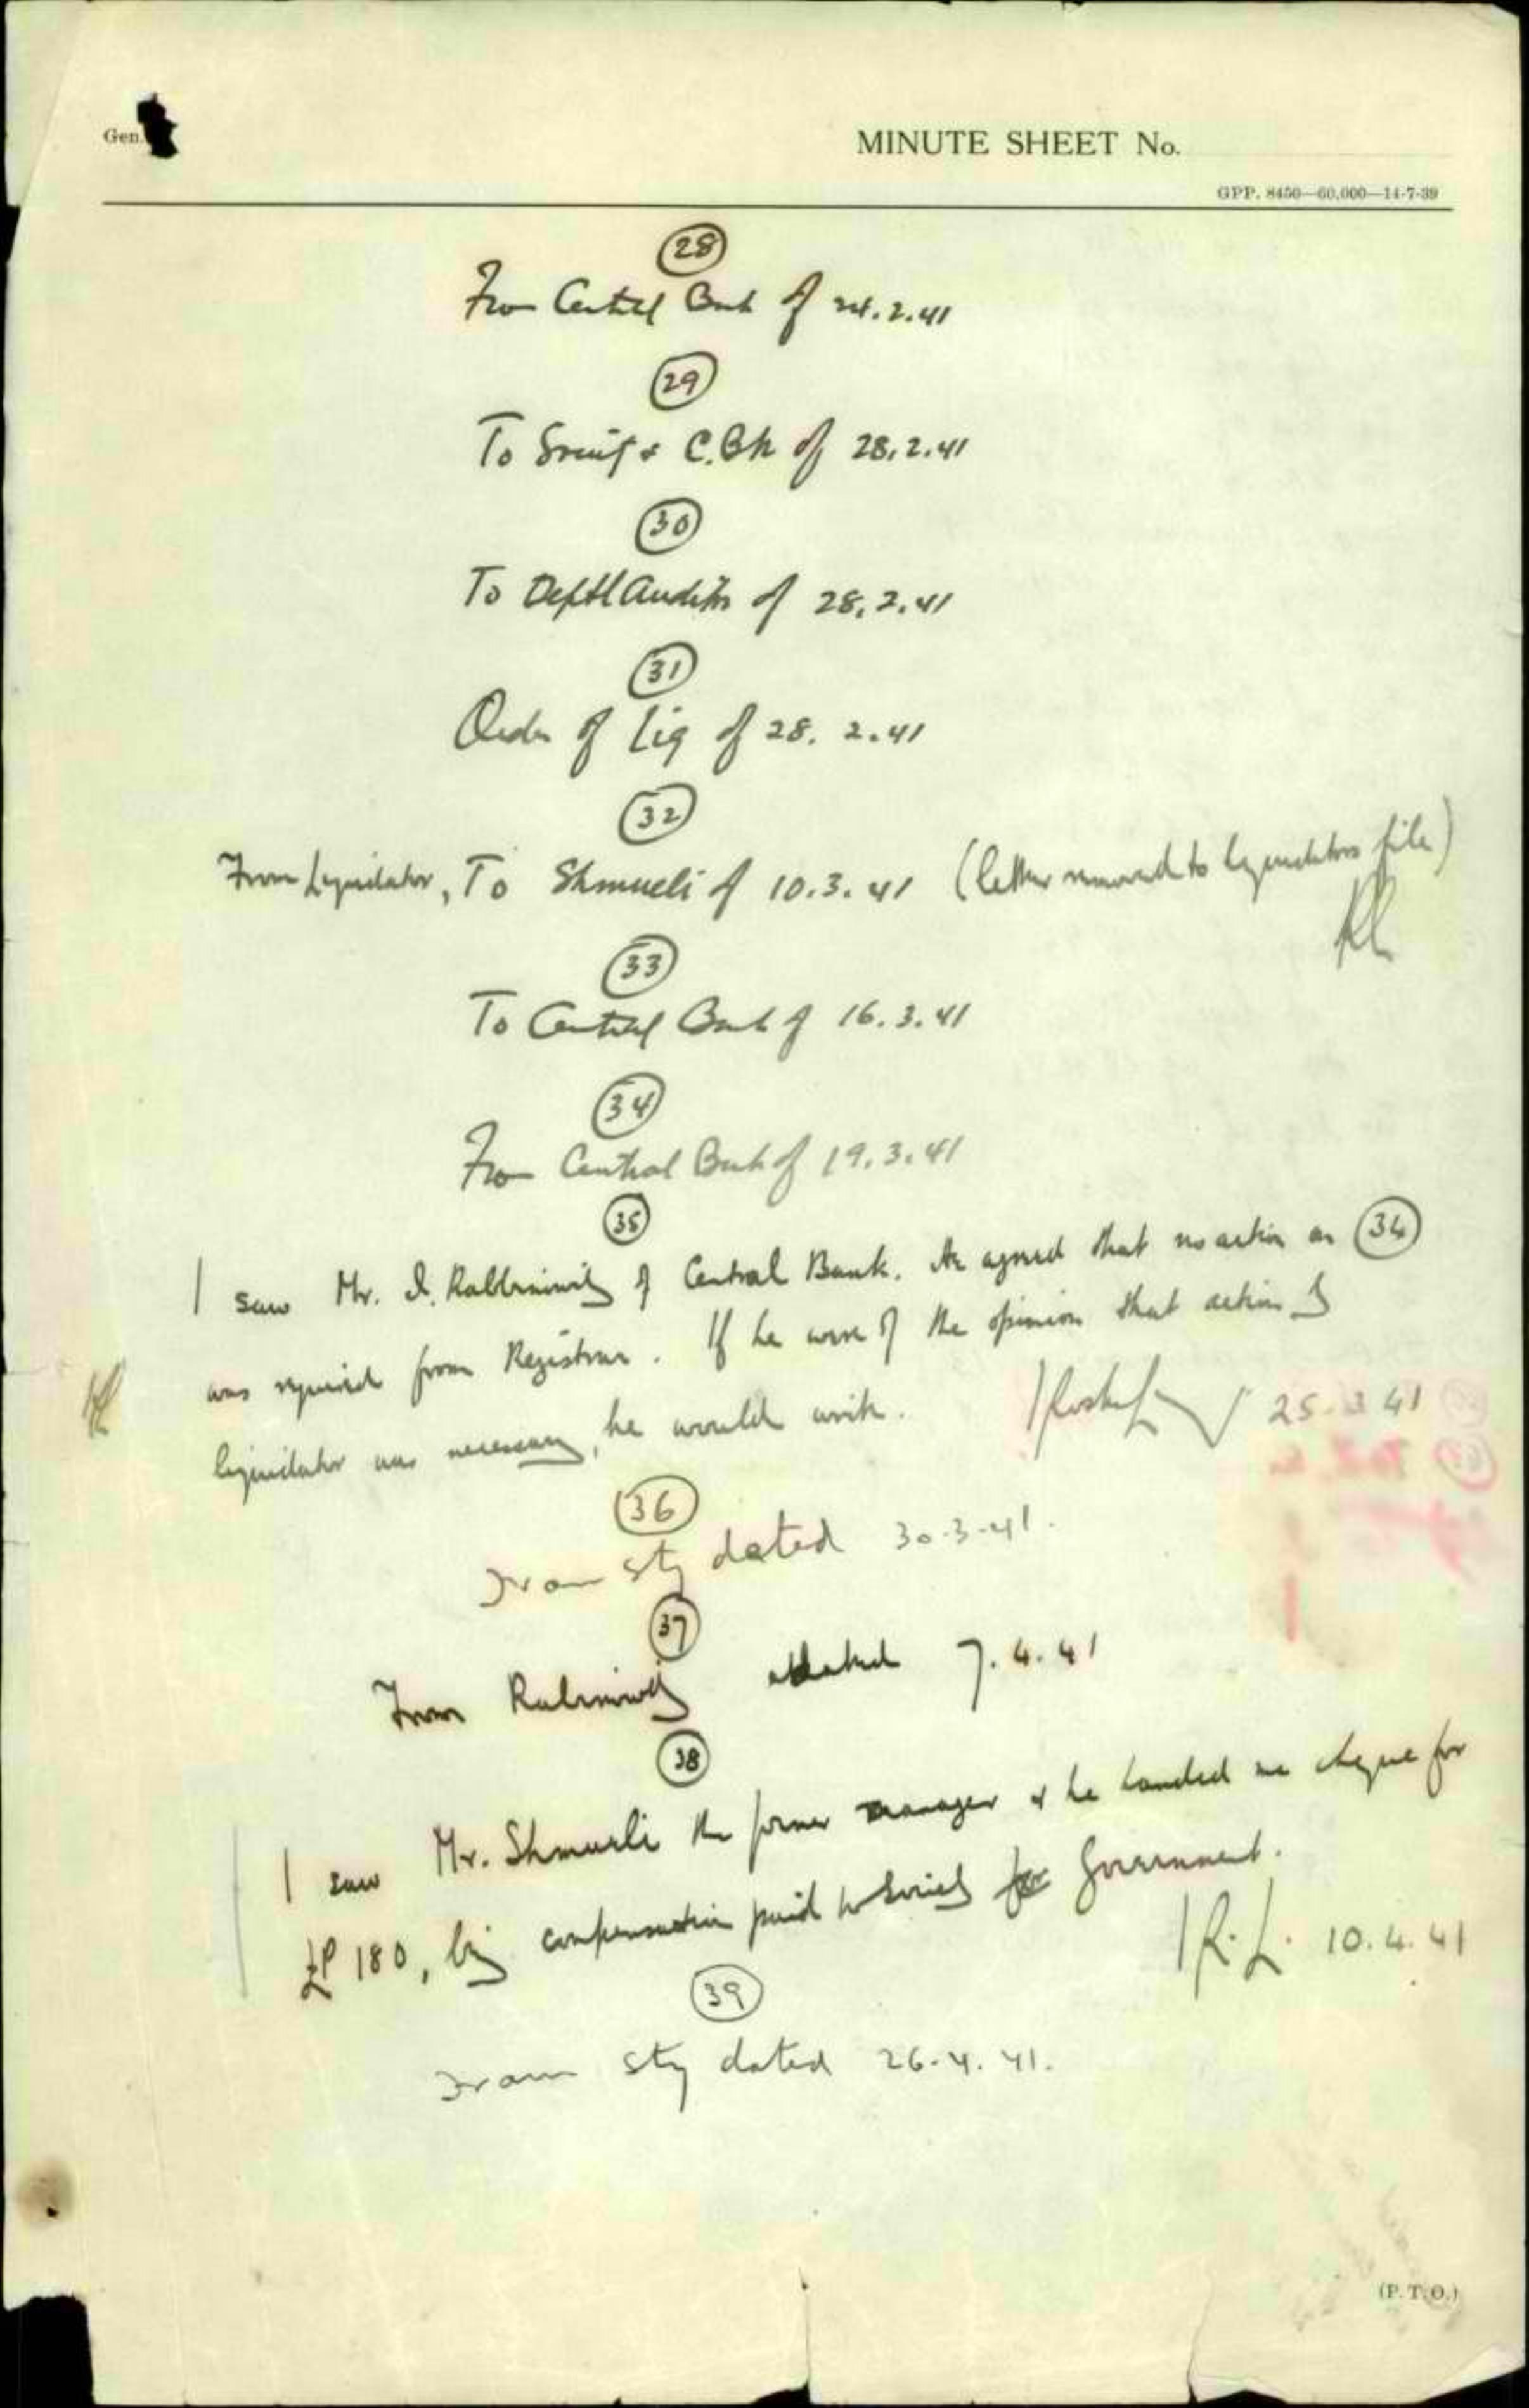 Gen.
MINUTE SHEET No.
GPP. 8450—60,000—14-7-39
28
From Central Bank of 24.2.41
29
To Society & C.Bk of 28.2.41
30
To Deptl Auditor of 28.2.41
31
Order of Liq of 28. 2.41
32
From Liquidator, To Shmueli of 10.3.41 (letter removed to liquidators file)
33
To Central Bank of 16.3.41
34
From Central Bank of 19.3.41
35
I saw Mr. I. Rabbinowitz of Central Bank. He agreed that no action on 34
was required from Registrar. If he were of the opinion that action by
liquidator was necessary, he would write.
25.3.41
36
From Sty dated 30.3.41.
37
From Rabinowitz dated 7.4.41
38
I saw Mr. Shmueli the former manager & he handed me cheque for
£P 180, being compensation paid to Society Government.
R.L. 10.4.41
39
From Sty dated 26.4.41.
(P.T.O.)